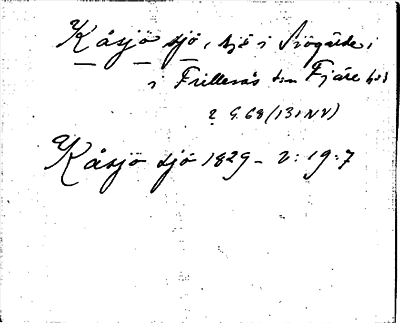 Kåsjö sjö, sjö i Sjögärde i
i Frillesås sn Fjäre hd
2 G. 68 (131NV)
Kåsjö sjö 1829 - v: 19:7